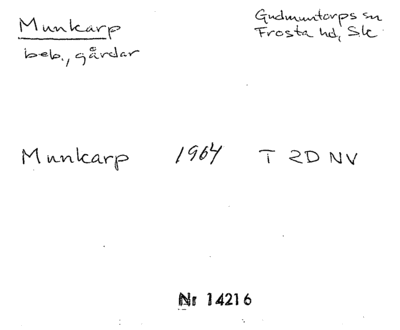 Munkarp
beb., gårdar
Gudmuntorps sn
Frosta hd, Sk
Munkarp 1964 T 2D NV
Nr 14216